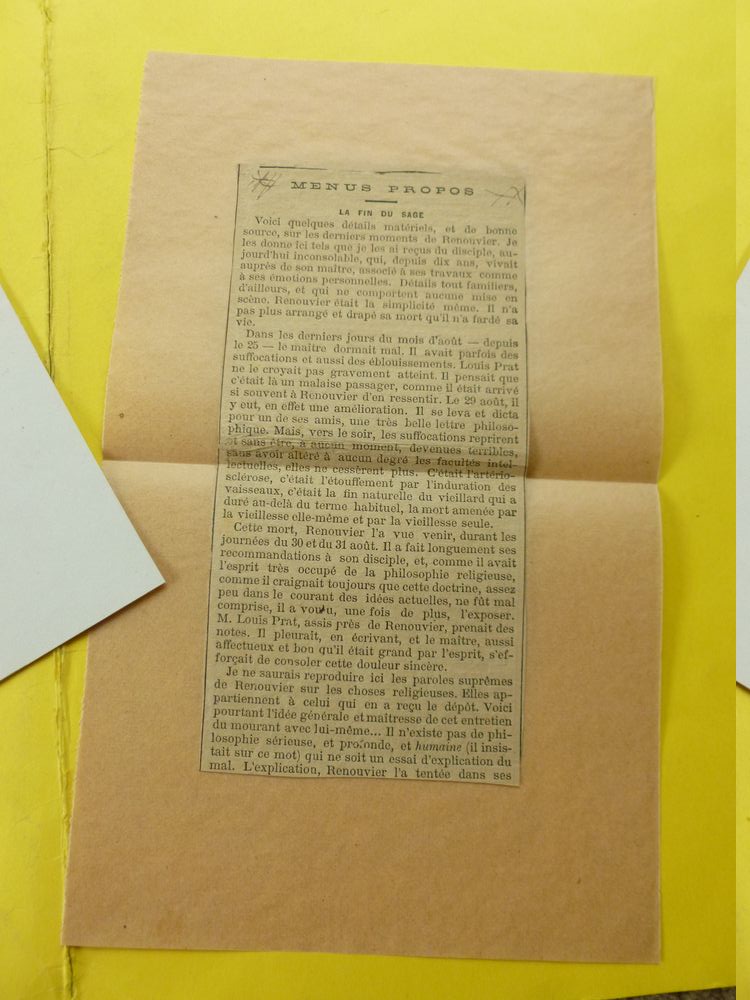 MENUS PROPOS
LA FIN DU SAGE
Voici quelques détails matériels, et de bonne
source, sur les derniers moments de Renouvier. Je
les donne ici tels que je les ai reçus du disciple, au-
jourd'hui inconsolable, qui, depuis dix ans, vivait
auprès de son maître, associé à ses travaux comme
à ses émotions personnelles. Détails tout familiers,
d'ailleurs, et qui ne comportent aucune mise en
scène. Renouvier était la simplicité même. Il n'a
pas plus arrangé et drapé sa mort qu'il n'a fardé sa
vie.
Dans les derniers jours du mois d'août — depuis
le 25 — le maître dormait mal. Il avait parfois des
suffocations et aussi des éblouissements. Louis Prat
ne le croyait pas gravement atteint. Il pensait que
c'était là un malaise passager, comme il était arrivé
si souvent à Renouvier d'en ressentir. Le 29 août, il
y eut, en effet une amélioration. Il se leva et dicta
pour un de ses amis, une très belle lettre philoso-
phique. Mais, vers le soir, les suffocations reprirent
et sans être, à aucun moment, devenues terribles,
sans avoir altéré à aucun degré les facultés intel-
lectuelles, elles ne cessèrent plus. C'était l'artério-
sclérose, c'était l'étouffement par l'induration des
vaisseaux, c'était la fin naturelle du vieillard qui a
duré au-delà du terme habituel, la mort amenée par
la vieillesse elle-même et par la vieillesse seule.
Cette mort, Renouvier l'a vue venir, durant les
journées du 30 et du 31 août. Il a fait longuement ses
recommandations à son disciple, et, comme il avait
l'esprit très occupé de la philosophie religieuse,
comme il craignait toujours que cette doctrine, assez
peu dans le courant des idées actuelles, ne fût mal
comprise, il a voulu, une fois de plus, l'exposer.
M. Louis Prat, assis près de Renouvier, prenait des
notes. Il pleurait, en écrivant, et le maître, aussi
affectueux et bon qu'il était grand par l'esprit, s'ef-
forçait de consoler cette douleur sincère.
Je ne saurais reproduire ici les paroles suprêmes
de Renouvier sur les choses religieuses. Elles ap-
partiennent à celui qui en a reçu le dépôt. Voici
pourtant l'idée générale et maîtresse de cet entretien
du mourant avec lui-même... Il n'existe pas de phi-
losophie sérieuse, et profonde, et humaine (il insis-
tait sur ce mot) qui ne soit un essai d'explication du
mal. L'explication, Renouvier l'a tentée dans ses